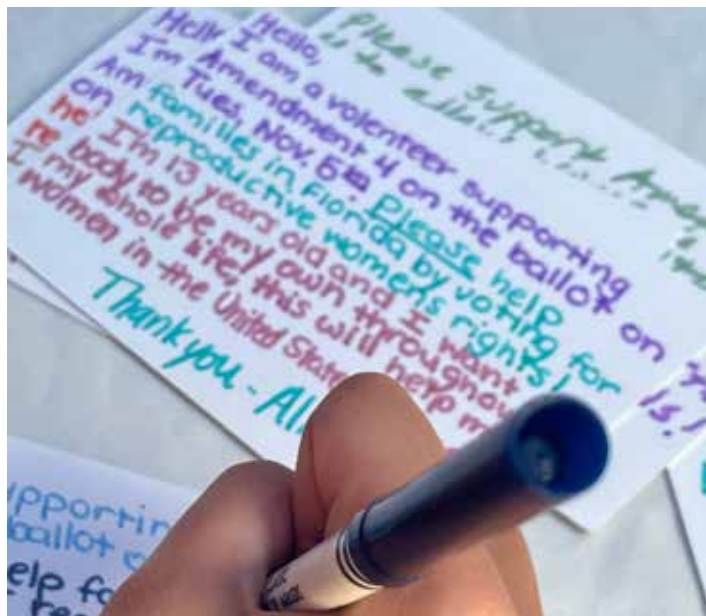 Please Support Amen
Hello,
I am a volenteer supporting
Amendment 4 on the ballot on
Tues, Nov. 5th. Please help
families in Florida by voting for
reproductive womens rights!
I'm 13 years old and I want
body to be my own throughou
my whole life, this will help m
women in the United State
Thank you - Al
Hell
I'm
Am
on
he
re
I
is!
upportin
ballot o
elp fo